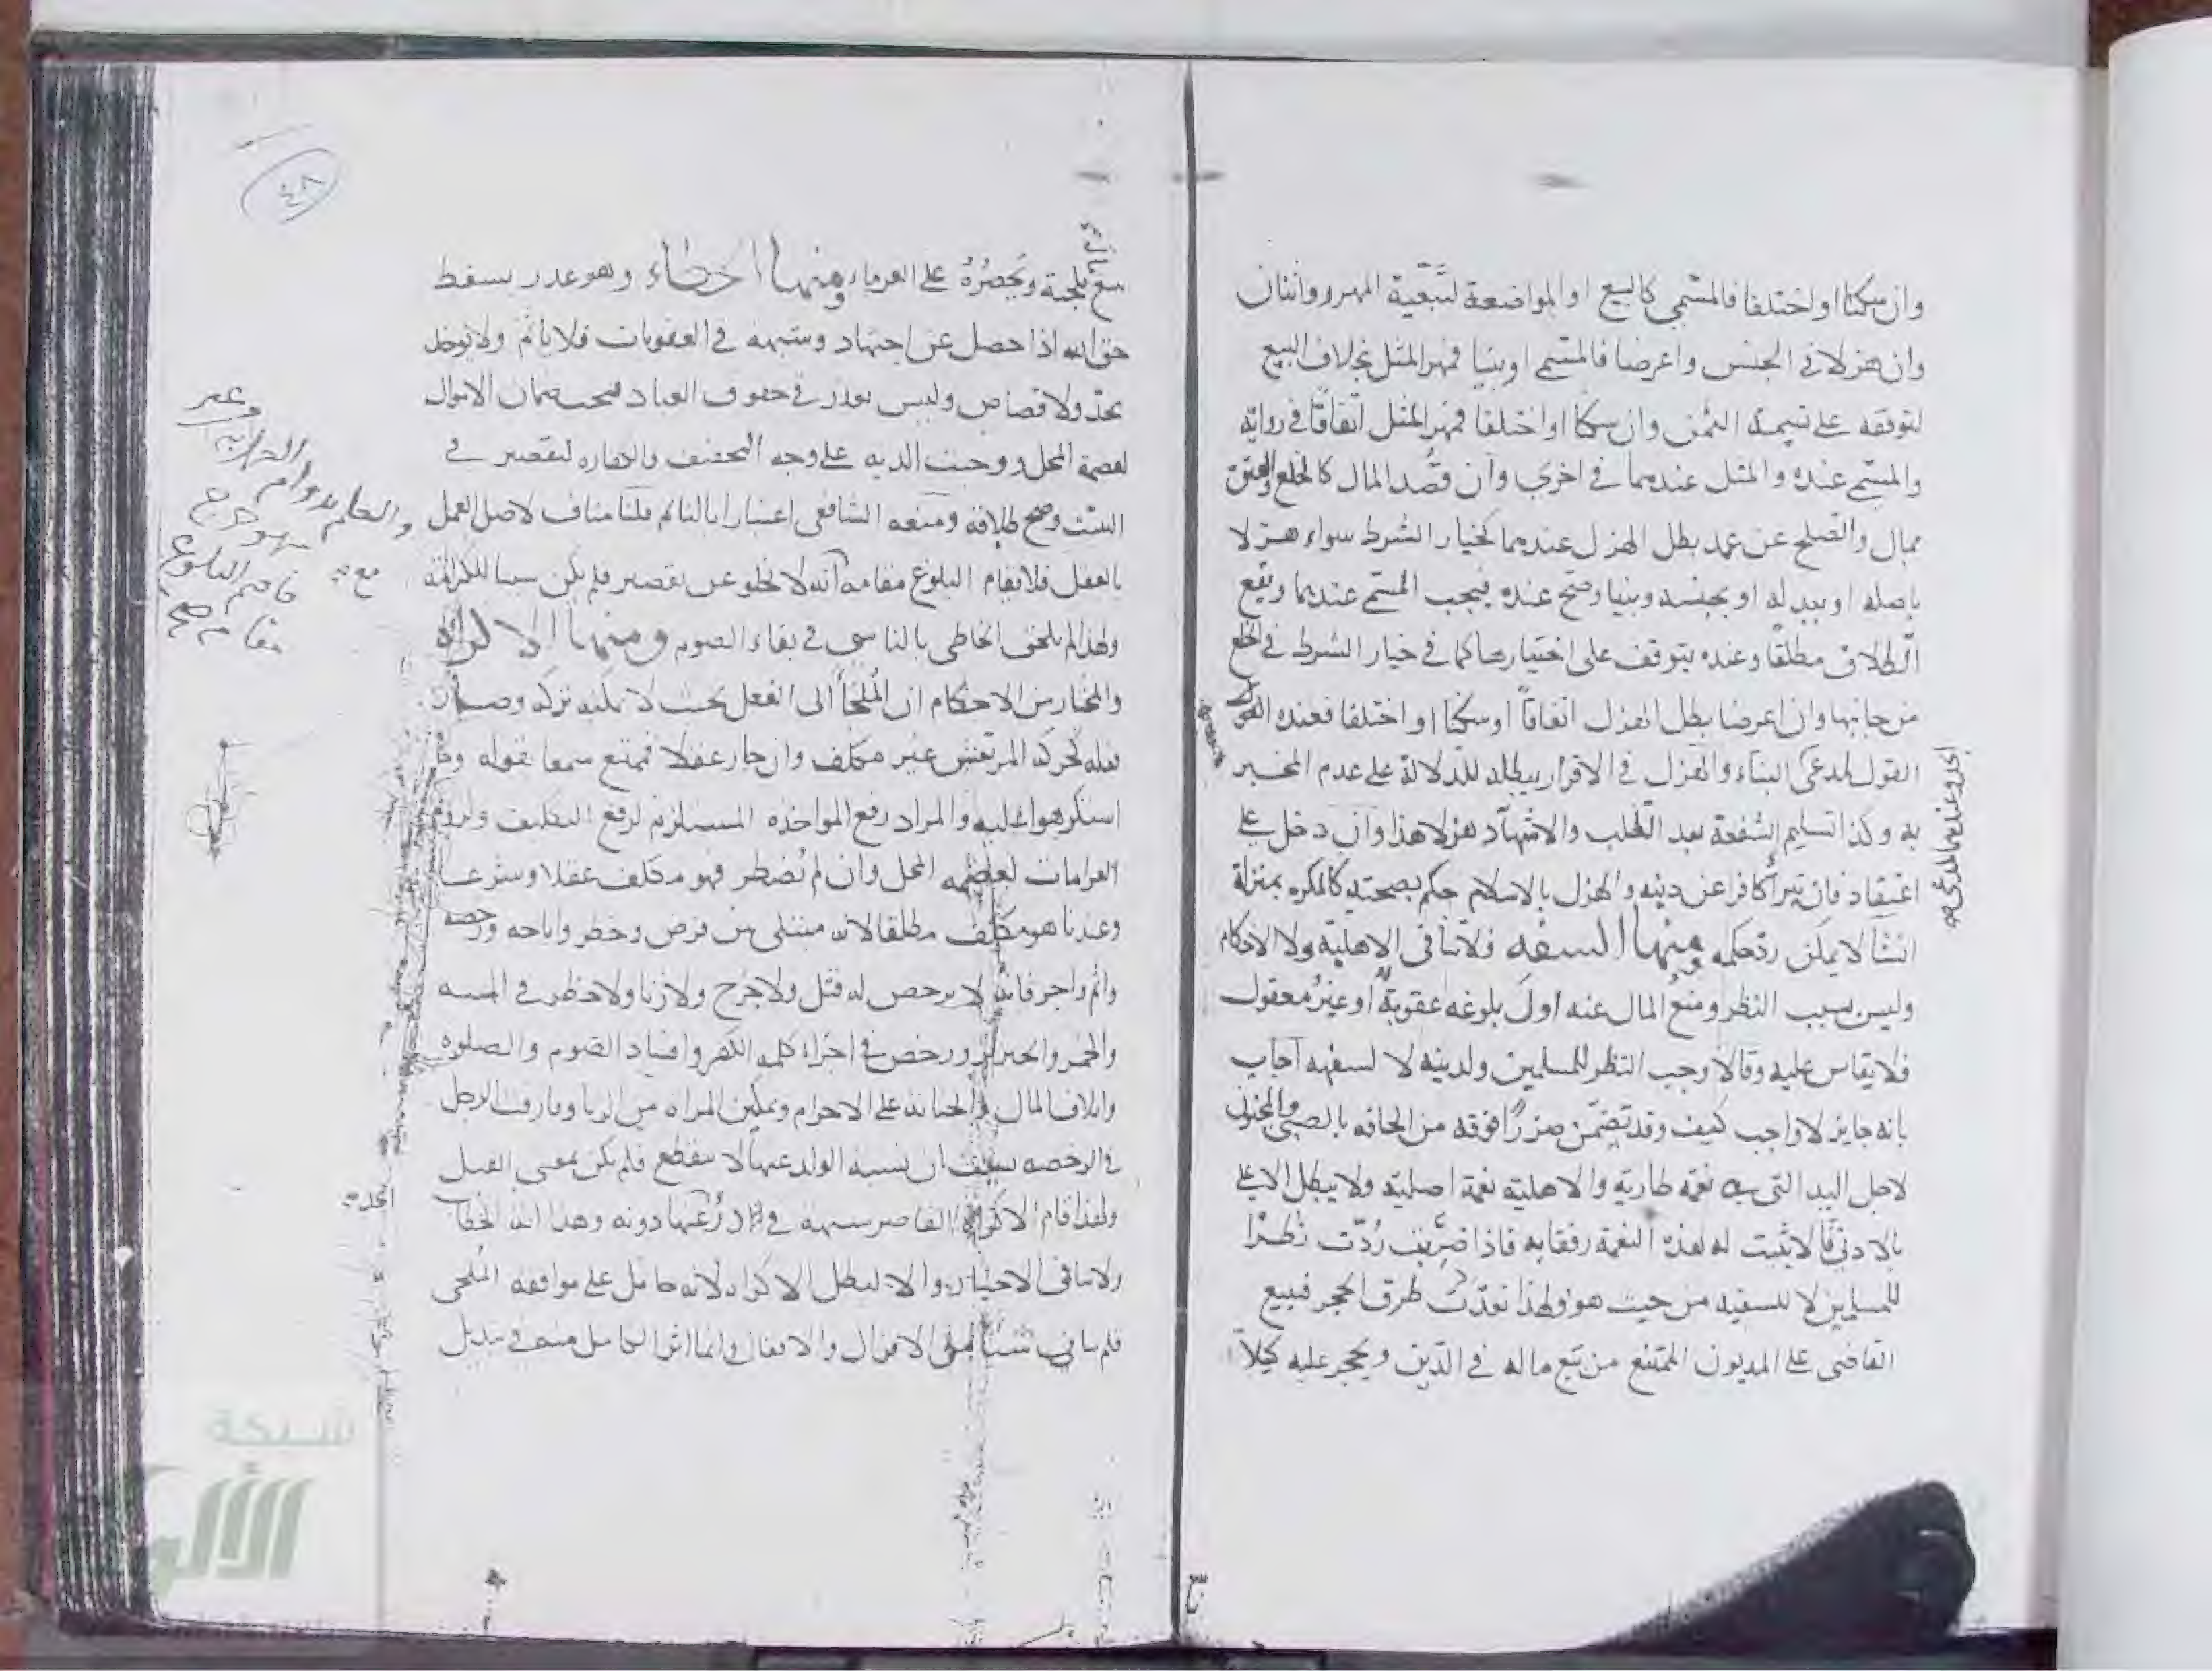 وان سكتا او اختلفا فالمسمى كالبيع او المواضعة لتبعية المهر روايتان
وان هزلا في الجنس واعرضا فالمسمى او بنيا فمهر المثل بخلاف البيع
لتوقفه على تسمية الثمن وان سكتا او اختلفا فمهر المثل اتفاقًا في رواية
والمسمى عنده والمثل عندهما في اخرى وان قصد المال كالخلع والعتق
بمال والصلح عن عمد بطل الهزل عندهما كخيار الشرط سواء هزلا
باصله او ببدله او بجنسه وبنيا وصح عنده فيجب المسمى عندهما ويقع
الطلاق مطلقًا وعنده يتوقف على اختيارها كما في خيار الشرط في الخلع
من جانبها وان اعرضا بطل الهزل اتفاقًا او سكتا او اختلفا فعنده القول
القول لمدعى البناء والهزل في الاقرار يبطله للدلالة على عدم المخبر
به وكذا تسليم الشفعة بعد الطلب والاشهاد هزلا هذا وان دخل على
اعتقاد فان تبرأ كافر عن دينه والهزل بالاسلام حكم بصحته كالمكره بمنزلة
انشا لا يمكن رد حكمه ومنها السفه فلا تنافى الاهلية ولا الاحكام
وليس سبب النظر ومنع المال عنه اول بلوغه عقوبة او غير معقول
فلا يقاس عليه وقالا وجب النظر للمسلمين ولدينه لا لسفهه اجاب
بانه جايز لا واجب كيف وقد تضمن ضررًا فوقه من الحاقه بالصبى والمجنون
لاجل اليد التى هي نعمة طارية والاهلية نعمة اصلية ولا يبطل الاعلى
بالادنى فالاثبت له هذه النعمة رفقا به فاذا ضر ردت نظرًا
للمسلمين لا للسفيه من حيث هو ولهذا تعددت طرق الحجر فيبيع
القاضى على المديون الممتنع من بيع ماله في الدين ويحجر عليه كيلا
بيع تلجئة ويحصره على الغرماء ومنها الخطاء وهو عذر يسقط
حق الله اذا حصل عن اجتهاد وشبهة في العقوبات فلا ياثم ولا يؤخذ
بحد ولا قصاص وليس بعذر في حقوق العباد فيجب ضمان الاموال
لعصمة المحل ووجبت الدية على وجه التخفيف والكفارة لتقصير في
التثبت وصح طلاقه ومنعه الشافعى اعتبارا بالنائم قلنا مناف لاصل العمل
بالعقل فلا يقام البلوغ مقامه انه لا يخلو عن تقصير فلم يكن سببا للكرامة
ولهذا لم يلحق الخاطى بالناسى في بقاء الصوم ومنها الاكراه
والمختار من الاحكام ان الملجأ الى الفعل بحيث لا يمكنه تركه وصار
فعله كحركة المرتعش غير مكلف وان جاز عقلا فممتنع سمعا بقوله وما
استكرهوا عليه والمراد رفع المواخذة المستلزم لرفع التكليف ولزوم
الغرامات لعصمة المحل وان لم يضطر فهو مكلف عقلا وشرعا
وعندنا هو مكلف مطلقا لانه مبتلى بين فرض وحظر واباحة ورخصة
واثم واجر فانه لا يرخص له قتل ولا جرح ولا زنا ولا حظر في الميتة
والخمر والخنزير ورخص في اجراء كلمة الكفر وافساد الصوم والصلوة
واتلاف المال والجناية على الاحرام وتمكين المراة من الزنا وفارقت الرجل
في الرخصة بان نسبة الولد عنها لا تنقطع فلم يكن بمعنى القتل
ولهذا قام الاكراه القاصر شبهة في درء دونه وهذا انه الخطاب
ولا ينافى الاختيار والا لبطل الاكراه لانه حامل على موافقة الملجى
فلم ينافى شيئا من الاقوال والافعال وانما اثر الكامل منه في تبديل
والعلم بدوام
فاقيم البلوغ
مقامه صح
٤٨
شبكة
الألوكة